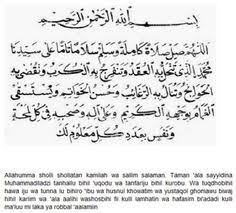 بِسْمِ اللهِ الرَّحْمٰنِ الرَّحِيْمِ
اَللّٰهُمَّ صَلِّ صَلَاةً كَامِلَةً وَسَلِّمْ سَلَامًا تَامًّا عَلَى سَيِّدِنَا
مُحَمَّدٍ الَّذِيْ تَنْحَلُّ بِهِ الْعُقَدُ وَتَنْفَرِجُ بِهِ الْكُرَبُ وَتُقْضَى بِهِ
الْحَوَائِجُ وَتُنَالُ بِهِ الرَّغَائِبُ وَحُسْنُ الْخَوَاتِمِ وَيُسْتَسْقَى
الْغَمَامُ بِوَجْهِهِ الْكَرِيْمِ وَعَلَى آلِهِ وَصَحْبِهِ فِيْ كُلِّ لَمْحَةٍ
وَنَفَسٍ بِعَدَدِ كُلِّ مَعْلُوْمٍ لَكَ
Allahumma sholli sholatan kamilah wa sallim salaman. Taman 'ala sayyidina
Muhammadiladzi tanhallu bihil 'uqodu wa tanfariju bihil kurobu. Wa tuqdhobihil
hawa iju wa tunna lu bihiro 'ibu wa husnul khowatim wa yustaqol ghomamu biwaj
hihil karim wa 'ala aalihi washosbihi fi kulli lamhatin wa hafasim bi'adadi kulli
ma'luu mi laka ya robbal 'aalamiin